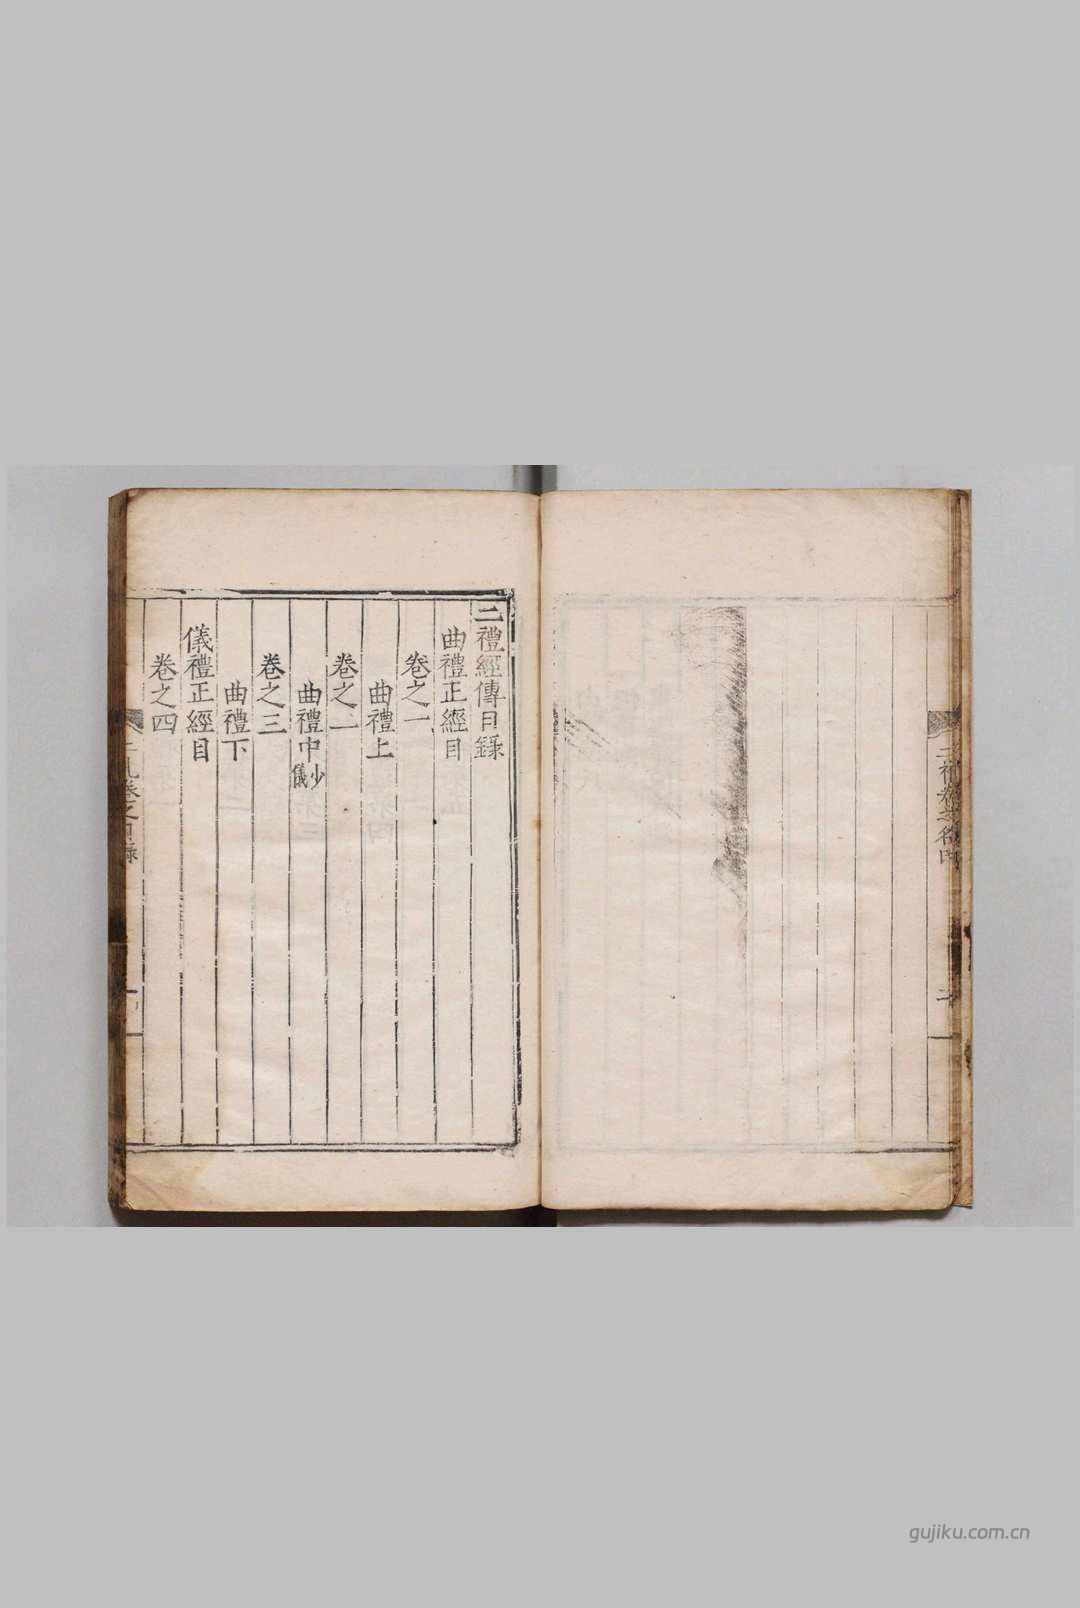 二禮經傳目錄
曲禮正經目
卷之一
曲禮上
卷之二
曲禮中少儀
卷之三
曲禮下
儀禮正經目
卷之四
gujiku.com.cn